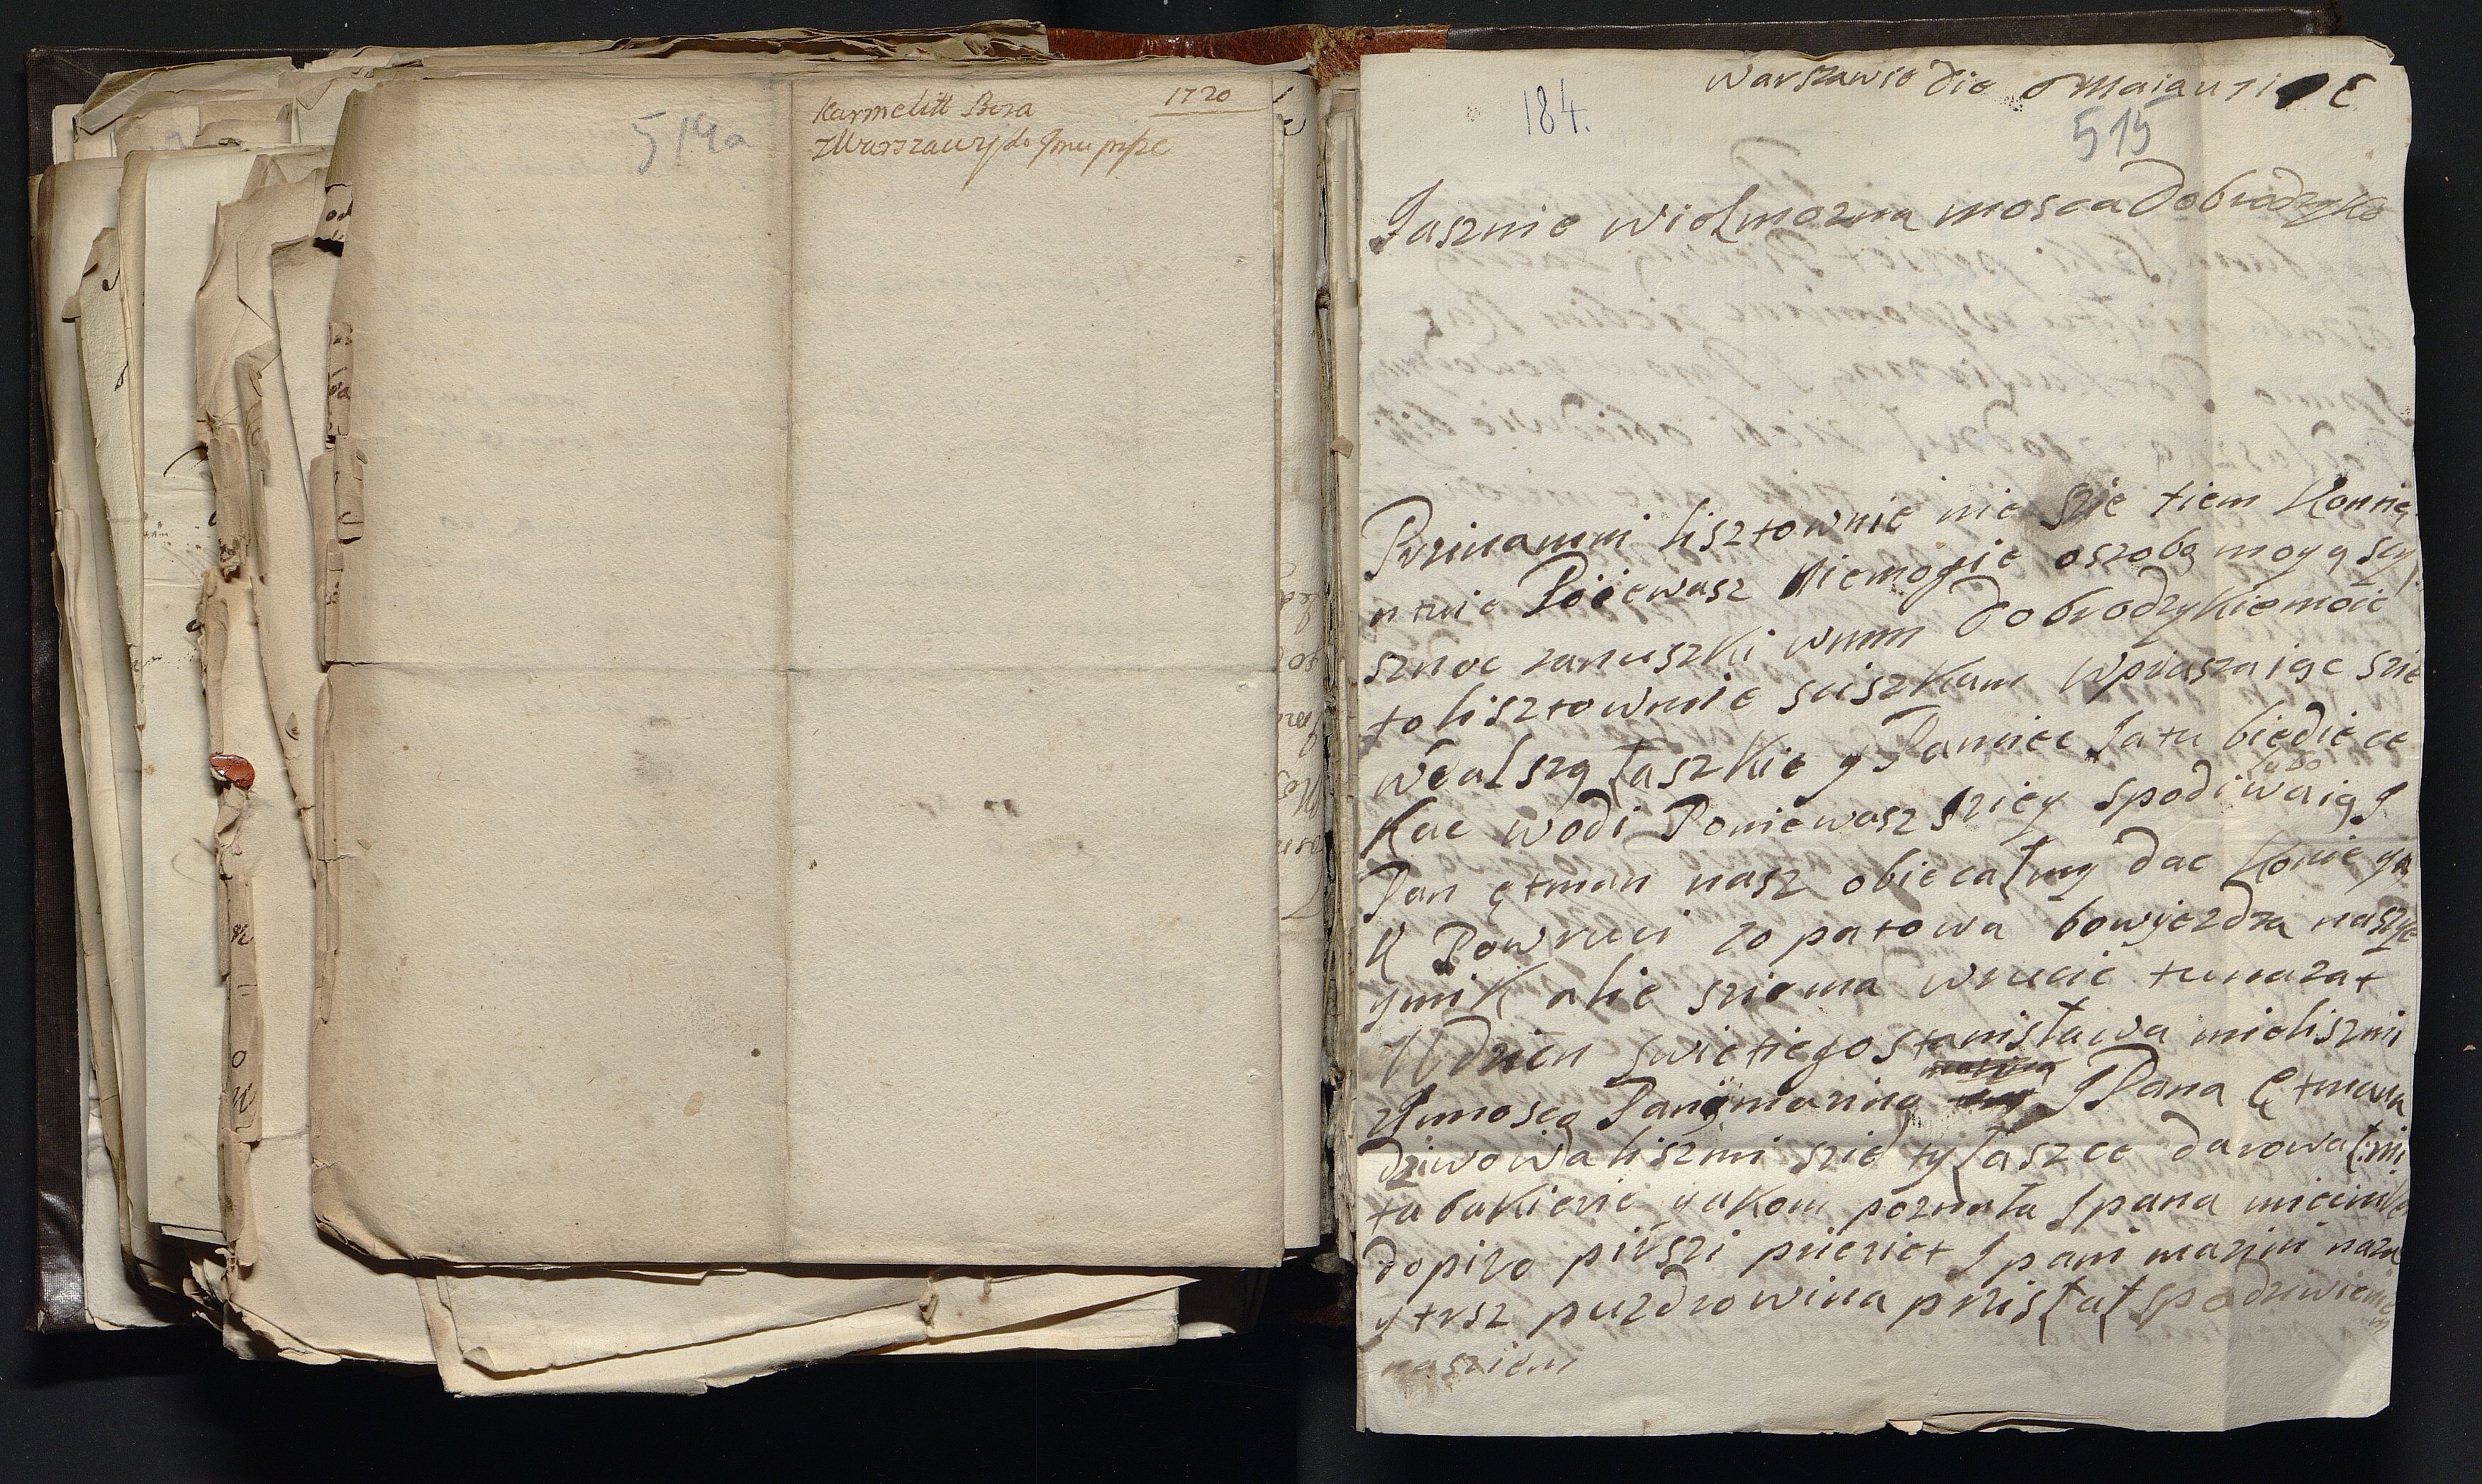 514a
Karmelitt Bosa 1720
z Warszawy do Jmci
184.
Warszawie die Maia
515
Jasznie wiolmozna mosca Dobrodzyko
Przinamni lisztownie nie szie tiem Konnię
ntuie Poiewasz Niemogie oszobą moyą scy
sznoc zanuszki wmm Dobrodzykiemoie
to lisztownie sciszkam wpraszaiąc szie
wdalszą łaszkie y Pamiec Ja tu biędięce
lubo
kac wodi Poniewasz sziey spodiwaią J
Pan ętman nasz obiecałmy dac Konie ya
K Powruci zopatowa bowjezdza naszye
ymik alie szioma wrucic tunazat
Wdzien swietiego stanisława mieliszmi
zJmoscą Panijmarina J Pana Ętmana
dziwowaliszmi szie ty łaszce darowałmi
tabakierie yakom poznała Jpana miecinika
dopiro pirszi prieriet Jpani marini nazu
ytrsz puzdrowina przisłał spodziwieniem
naszien